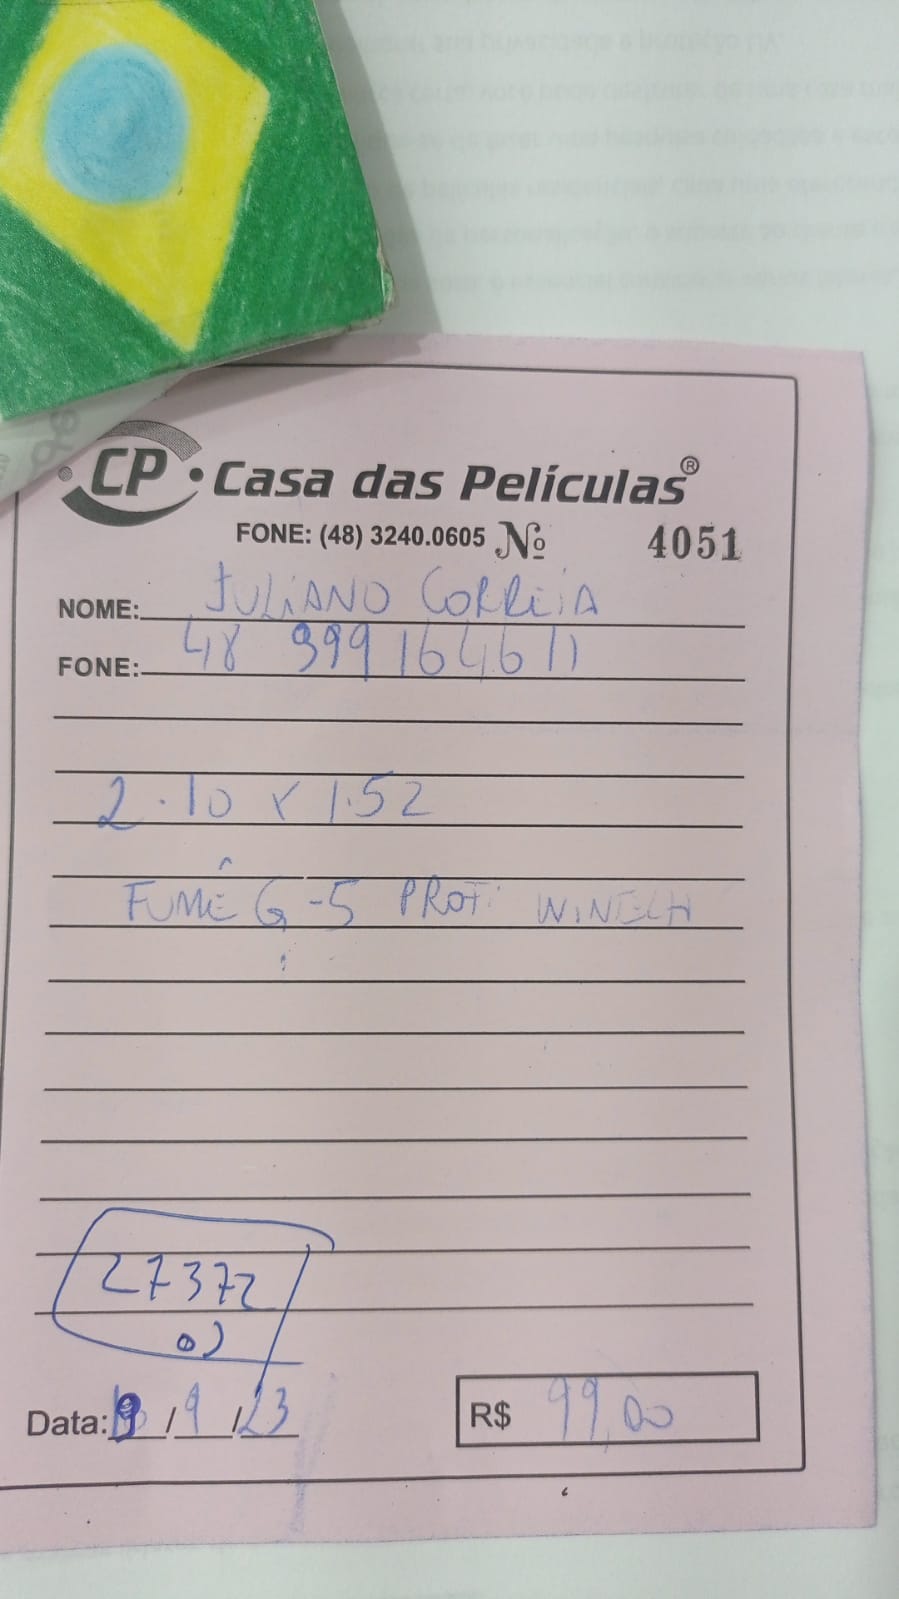 CP • Casa das Películas®
FONE: (48) 3240.0605 Nº 4051
NOME: JULIANO CORREIA
FONE: 48 999164611
2.10 x 1.52
FUMÊ G-5 PROF. WINTECH
27372
Data: / 9 / 23 R$ 99,00